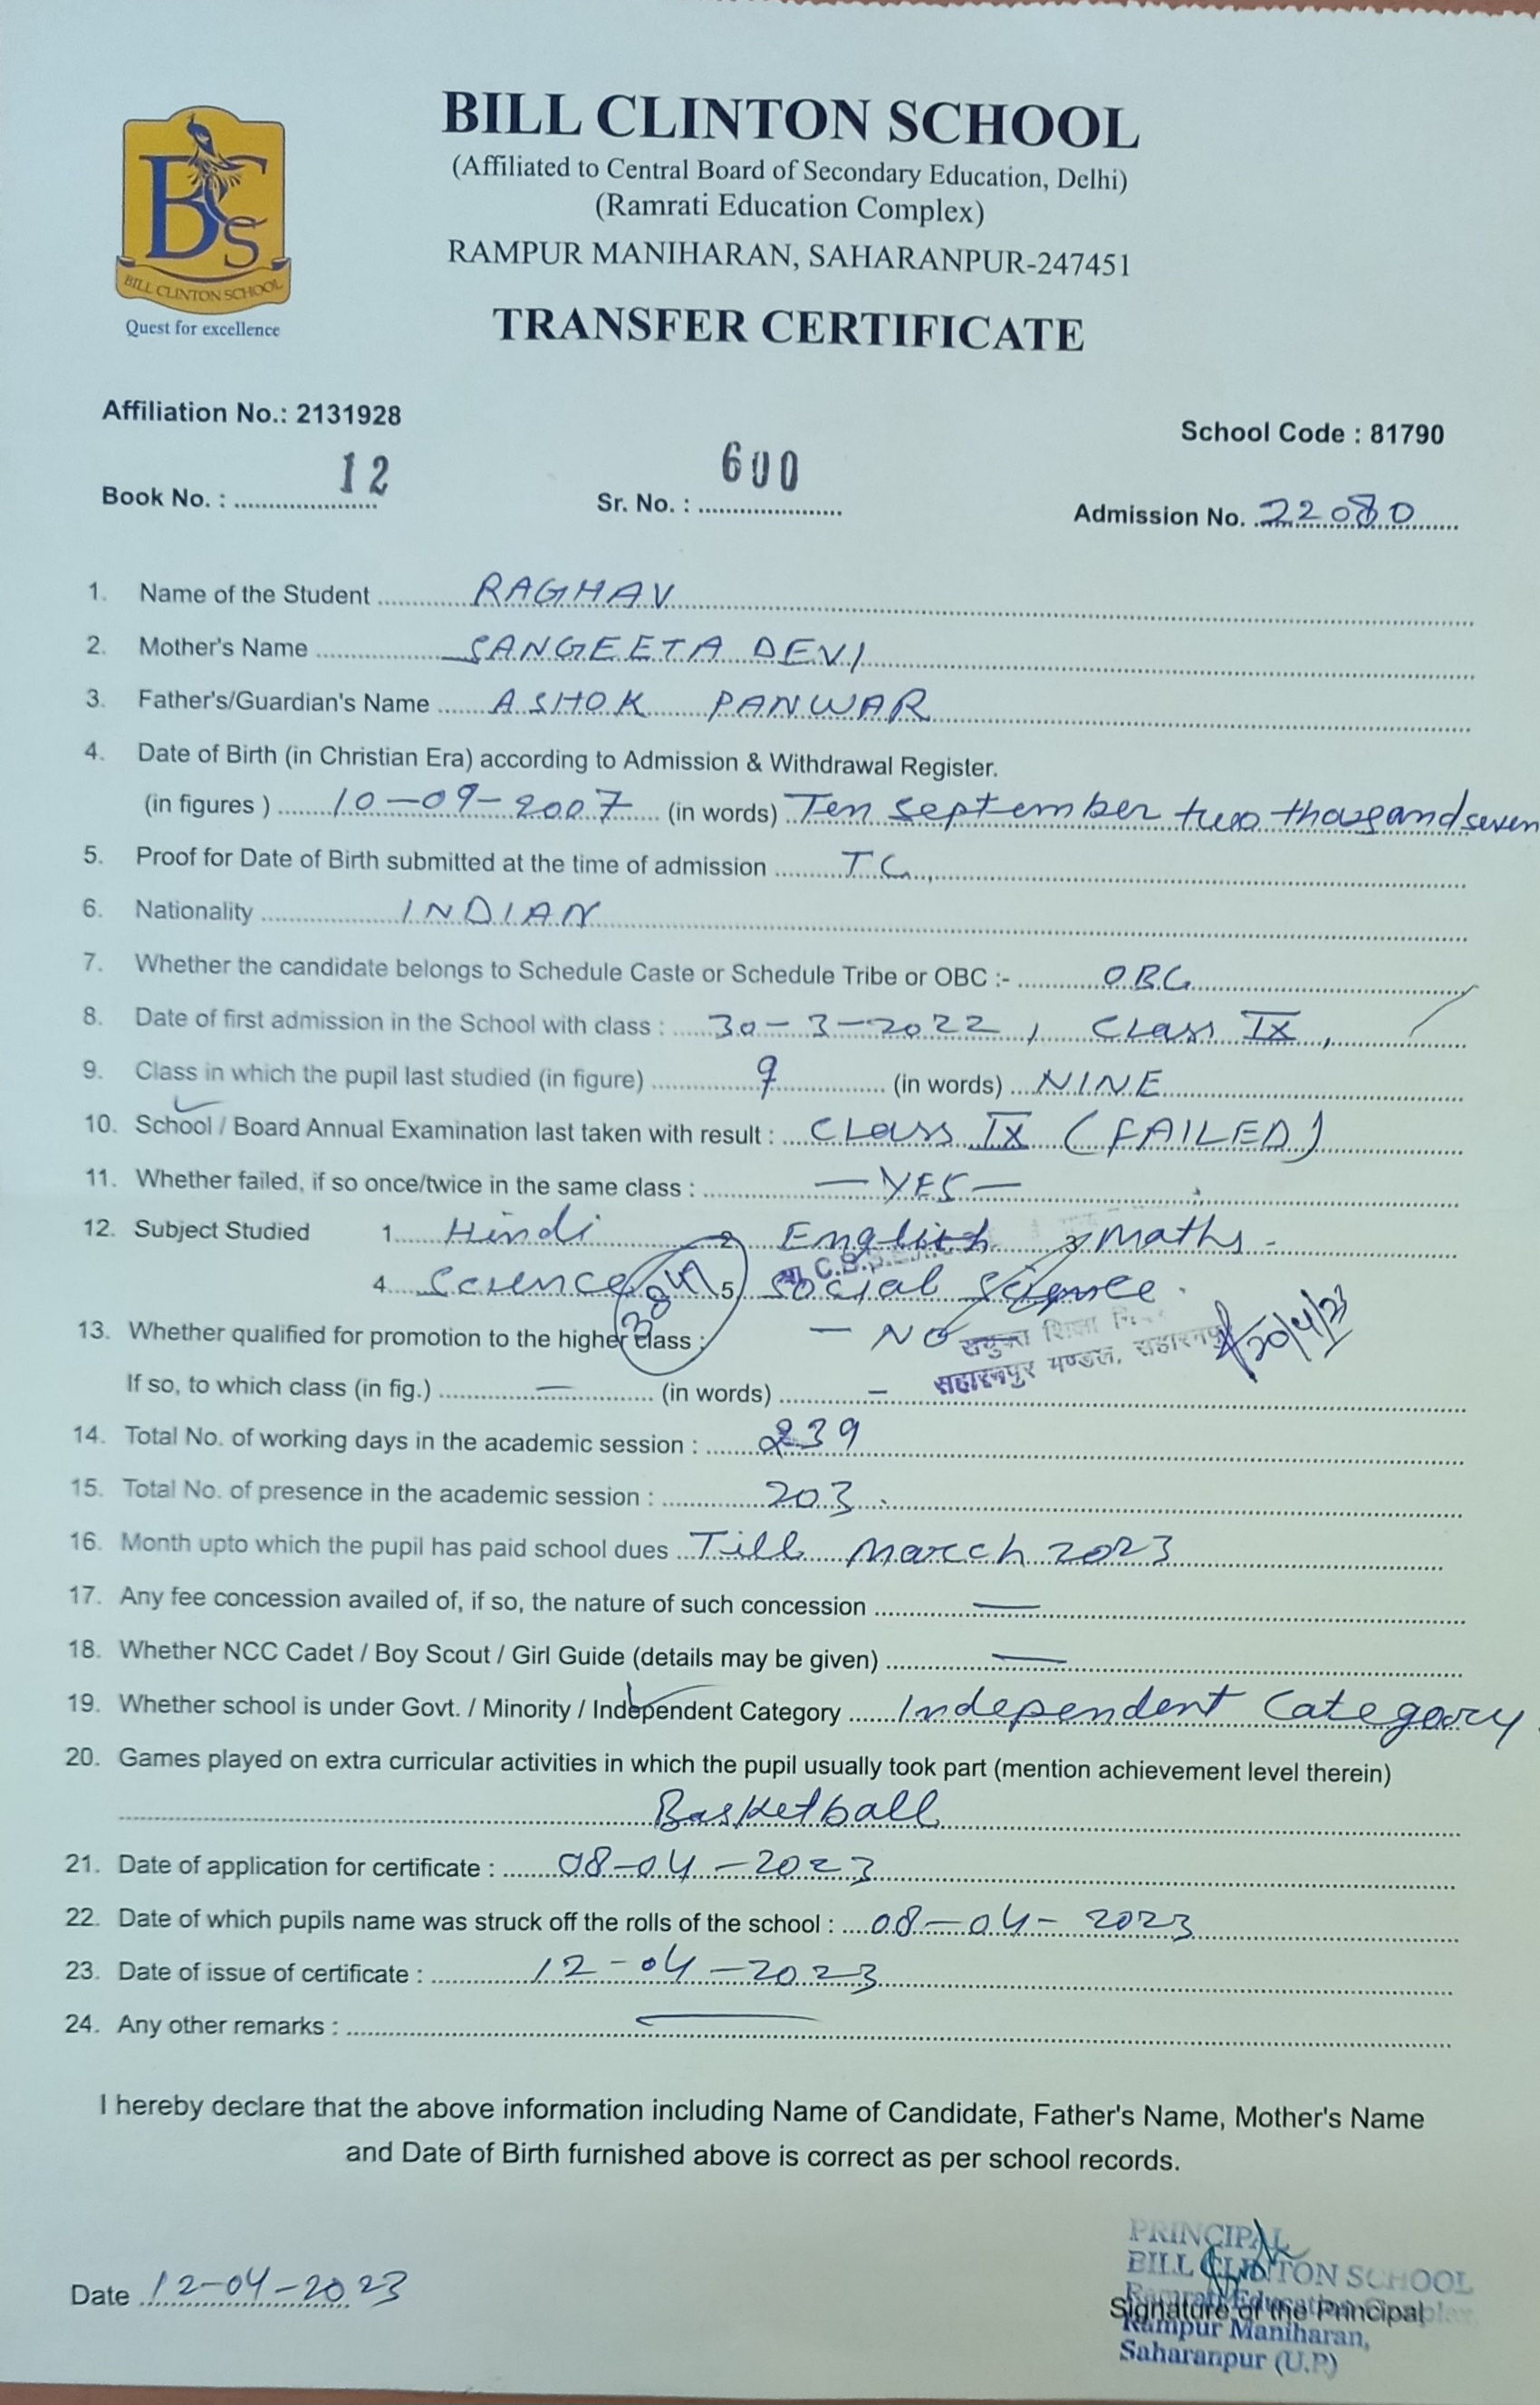 BILL CLINTON SCHOOL
(Affiliated to Central Board of Secondary Education, Delhi)
(Ramrati Education Complex)
RAMPUR MANIHARAN, SAHARANPUR-247451
BCS
BILL CLINTON SCHOOL
Quest for excellence
TRANSFER CERTIFICATE
Affiliation No.: 2131928
School Code : 81790
Book No. : 12 Sr. No. : 600 Admission No. 22080
1. Name of the Student RAGHAV
2. Mother's Name SANGEETA DEVI
3. Father's/Guardian's Name ASHOK PANWAR
4. Date of Birth (in Christian Era) according to Admission & Withdrawal Register.
(in figures ) 10-09-2007 (in words) Ten september two thousand seven
5. Proof for Date of Birth submitted at the time of admission T.C.
6. Nationality INDIAN
7. Whether the candidate belongs to Schedule Caste or Schedule Tribe or OBC :- OBC
8. Date of first admission in the School with class : 30-3-2022, Class IX,
9. Class in which the pupil last studied (in figure) 9 (in words) NINE
10. School / Board Annual Examination last taken with result : Class IX (FAILED)
11. Whether failed, if so once/twice in the same class : -YES-
12. Subject Studied 1. Hindi 2. English 3. Maths -
4. Science 5. Social Science.
13. Whether qualified for promotion to the higher class : - NO
संयुक्त शिक्षा
सहारनपुर मण्डल, सहारनपुर
20/4/23
If so, to which class (in fig.) - (in words) -
14. Total No. of working days in the academic session : 239
15. Total No. of presence in the academic session : 203
16. Month upto which the pupil has paid school dues Till March 2023
17. Any fee concession availed of, if so, the nature of such concession -
18. Whether NCC Cadet / Boy Scout / Girl Guide (details may be given) -
19. Whether school is under Govt. / Minority / Independent Category Independent Category.
20. Games played on extra curricular activities in which the pupil usually took part (mention achievement level therein)
Basketball
21. Date of application for certificate : 08-04-2023
22. Date of which pupils name was struck off the rolls of the school : 08-04-2023
23. Date of issue of certificate : 12-04-2023
24. Any other remarks : -
I hereby declare that the above information including Name of Candidate, Father's Name, Mother's Name
and Date of Birth furnished above is correct as per school records.
Date 12-04-2023
PRINCIPAL
BILL CLINTON SCHOOL
Ramrati Education Complex
Signature of the Principal
Rampur Maniharan,
Saharanpur (U.P.)